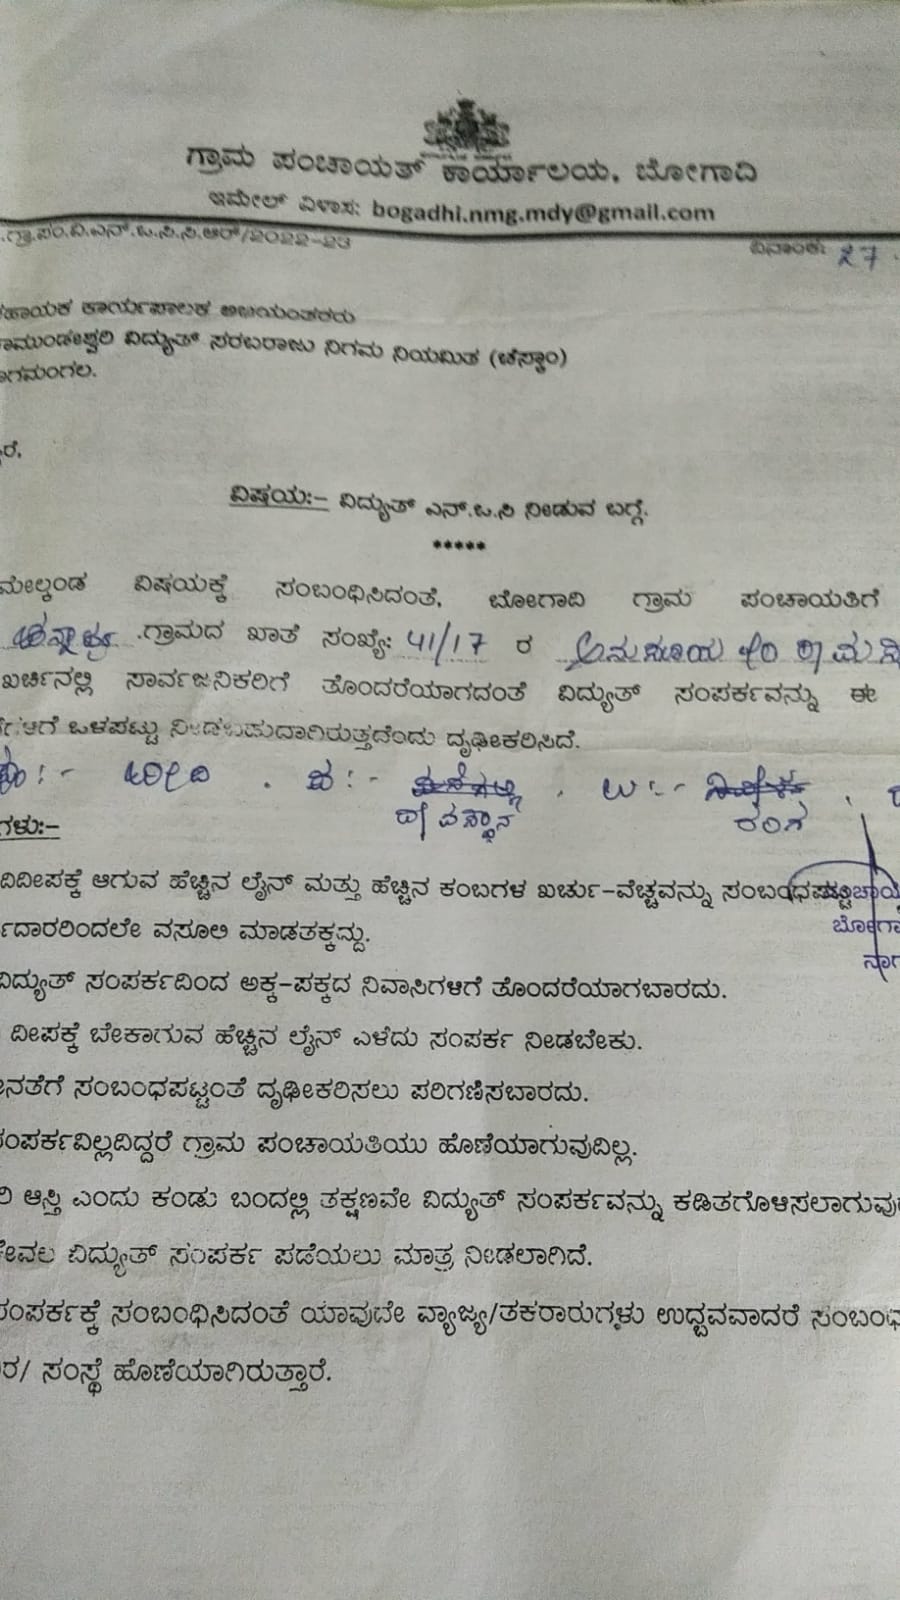 ಗ್ರಾಮ ಪಂಚಾಯತ್ ಕಾರ್ಯಾಲಯ, ಬೋಗಾದಿ
ಇಮೇಲ್ ವಿಳಾಸ: bogadhi.nmg.mdy@gmail.com
.ಗ್ರಾ.ಪಂ.ವಿ.ಎನ್.ಒ.ಸಿ.ಸಿ.ಆರ್/2022-23 ದಿನಾಂಕ: 27
ಹಾಯಕ ಕಾರ್ಯಪಾಲಕ ಅಭಿಯಂತರರು
ಾಮುಂಡೇಶ್ವರಿ ವಿದ್ಯುತ್ ಸರಬರಾಜು ನಿಗಮ ನಿಯಮಿತ (ಚೆಸ್ಕಾಂ)
ಾಗಮಂಗಲ.
ರೆ,
ವಿಷಯ:- ವಿದ್ಯುತ್ ಎನ್.ಒ.ಸಿ ನೀಡುವ ಬಗ್ಗೆ.
*****
ಮೇಲ್ಕಂಡ ವಿಷಯಕ್ಕೆ ಸಂಬಂಧಿಸಿದಂತೆ, ಬೋಗಾದಿ ಗ್ರಾಮ ಪಂಚಾಯತಿಗೆ
ಗ್ರಾಮದ ಖಾತೆ ಸಂಖ್ಯೆ: 41/17 ರ
ಖರ್ಚಿನಲ್ಲಿ ಸಾರ್ವಜನಿಕರಿಗೆ ತೊಂದರೆಯಾಗದಂತೆ ವಿದ್ಯುತ್ ಸಂಪರ್ಕವನ್ನು ಈ
ಳಿಗೆ ಒಳಪಟ್ಟು ನೀಡಬಹುದಾಗಿರುತ್ತದೆಂದು ದೃಢೀಕರಿಸಿದೆ.
:- ಬೀದಿ . ಪ :- , ಉ :- ,
ದೇವಸ್ಥಾನ ರಂಗ
ಗಳು:-
ದಿದೀಪಕ್ಕೆ ಆಗುವ ಹೆಚ್ಚಿನ ಲೈನ್ ಮತ್ತು ಹೆಚ್ಚಿನ ಕಂಬಗಳ ಖರ್ಚು-ವೆಚ್ಚವನ್ನು ಸಂಬಂಧಪಟ್ಟ
ದಾರರಿಂದಲೇ ವಸೂಲಿ ಮಾಡತಕ್ಕದ್ದು. ಬೋಗಾ
ನಾಗ
ವಿದ್ಯುತ್ ಸಂಪರ್ಕದಿಂದ ಅಕ್ಕ-ಪಕ್ಕದ ನಿವಾಸಿಗಳಿಗೆ ತೊಂದರೆಯಾಗಬಾರದು.
ದೀಪಕ್ಕೆ ಬೇಕಾಗುವ ಹೆಚ್ಚಿನ ಲೈನ್ ಎಳೆದು ಸಂಪರ್ಕ ನೀಡಬೇಕು.
ನತೆಗೆ ಸಂಬಂಧಪಟ್ಟಂತೆ ದೃಢೀಕರಿಸಲು ಪರಿಗಣಿಸಬಾರದು.
ಸಂಪರ್ಕವಿಲ್ಲದಿದ್ದರೆ ಗ್ರಾಮ ಪಂಚಾಯತಿಯು ಹೊಣೆಯಾಗುವುದಿಲ್ಲ.
ರಿ ಆಸ್ತಿ ಎಂದು ಕಂಡು ಬಂದಲ್ಲಿ ತಕ್ಷಣವೇ ವಿದ್ಯುತ್ ಸಂಪರ್ಕವನ್ನು ಕಡಿತಗೊಳಿಸಲಾಗುವು
ಕೇವಲ ವಿದ್ಯುತ್ ಸಂಪರ್ಕ ಪಡೆಯಲು ಮಾತ್ರ ನೀಡಲಾಗಿದೆ.
ಸಂಪರ್ಕಕ್ಕೆ ಸಂಬಂಧಿಸಿದಂತೆ ಯಾವುದೇ ವ್ಯಾಜ್ಯ/ತಕರಾರುಗಳು ಉದ್ಭವವಾದರೆ ಸಂಬಂಧ
ರ/ ಸಂಸ್ಥೆ ಹೊಣೆಯಾಗಿರುತ್ತಾರೆ.